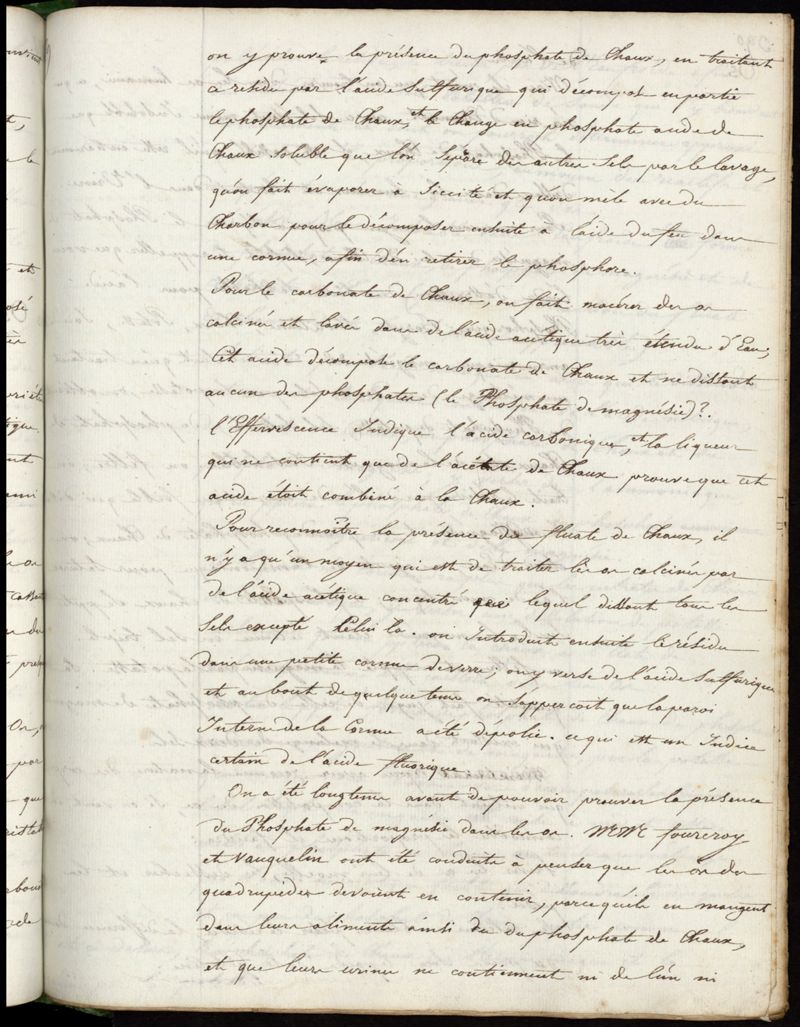 on y prouve la présence du phosphate de Chaux, en traitant
ce résidu par l'acide Sulfurique qui décompose en partie
le phosphate de Chaux, et le Change en phosphate acide de
Chaux soluble que l'on Sépare des autres Sels par le lavage,
qu'on fait évaporer à Siccité et qu'on mêle avec du
Charbon pour le décomposer ensuite à l'aide du feu dans
une cornue, afin d'en retirer le phosphore.
Pour le carbonate de Chaux, on fait macérer des os
calcinés et lavés dans de l'acide acétique très étendu d'Eau,
Cet acide décompose le carbonate de Chaux et ne dissout
aucun des phosphates (le Phosphate de magnésie)?.
l'Effervescence Indique l'acide carbonique, et la liqueur
qui ne contient que de l'acétate de Chaux prouve que cet
acide étoit combiné à la Chaux.
Pour reconnoître la présence du fluate de Chaux, il
n'y a qu'un moyen qui est de traiter les os calcinés par
de l'acide acetique concentré lequel dissout tous les
Sels excepté Celui là. on Introduit ensuite le résidu
dans une petite cornue de verre, on y verse de l'acide Sulfurique
et au bout de quelque tems on S'apperçoit que la paroi
Interne de la Cornue a été dépolie. ce qui est un Indice
certain de l'acide fluorique.
On a été longtems avant de pouvoir prouver la présence
du Phosphate de magnésie dans les os. MM fourcroy
et Vauquelin ont été conduits à penser que les os des
quadrupèdes devoient en contenir, parcequ'ils en mangent
dans leurs alimens ainsi que du phosphate de Chaux,
et que leurs urines ne contiennent ni de l'un ni